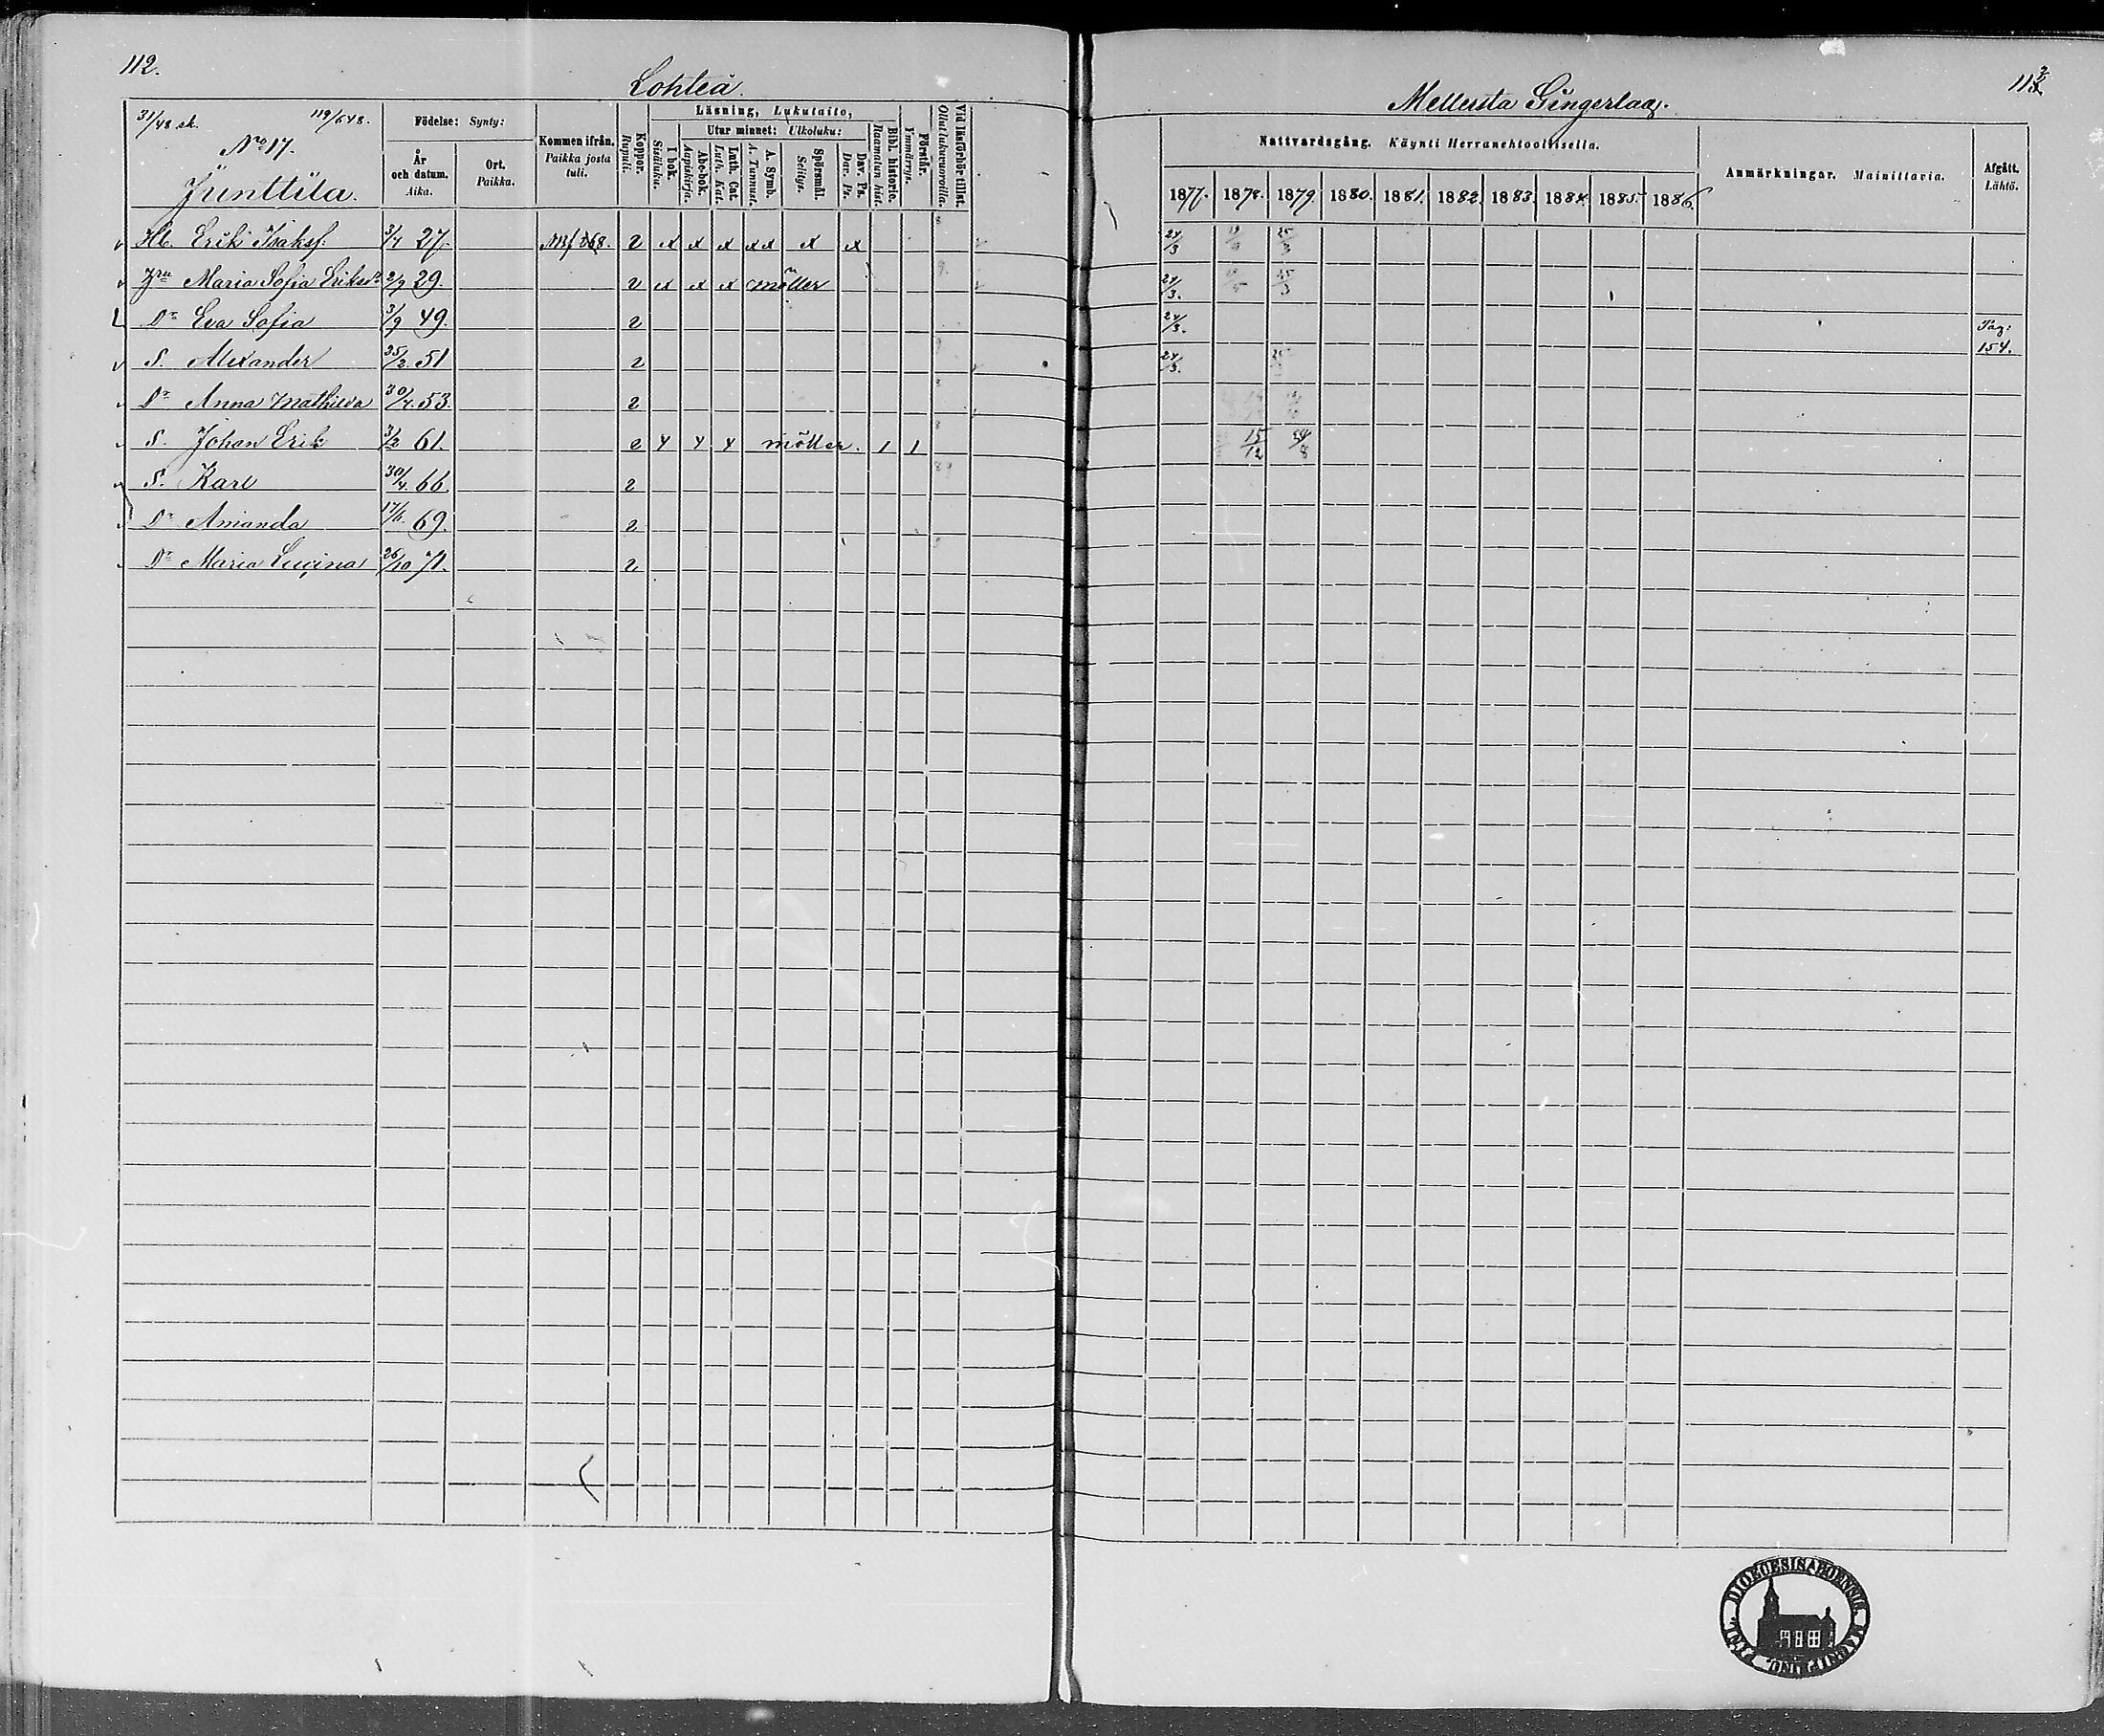 112.
Lohteå
Mellersta Gingerlag.
113
31/48 sk. 119/648.
No 17.
Junttila.
Födelse: Synty:
År och datum. Aika.
Ort. Paikka.
Kommen ifrån. Paikka josta tuli.
Koppor. Rupuli.
Läsning, Lukutaito,
I bok. Sisäluku.
Utur minnet: Ulkoluku:
Abc-bok. Aapiskirja.
Luth. Cat. Luth. Kat.
A. Symb. A. Tunnust.
Spörsmål. Selitys.
Dav. Ps. Dav. Ps.
Bibl. historie. Raamatun hist.
Förstår. Ymmärrys.
Vid läsförhör tillst. Ollut lukuvuoroilla.
Nattvardsgång. Käynti Herranehtoollisella.
1877. 1878. 1879. 1880. 1881. 1882. 1883. 1884. 1885. 1886.
Anmärkningar. Mainittavia.
Afgått. Lähtö.
Hb. Erik Isaksf. 3/7 27. 2 x x x x x x x 24/3 25/3
Maria Sofia Eriksd. 2/9 29. 2 x x x möller 24/3. 25/3
Dr Eva Sofia 3/9 49. 2 24/3. Pag: 154.
S. Alexander 25/2 51 2 24/3.
Dr Anna Mathilda 30/7. 53. 2
S. Johan Erik 3/2 61. 2 x x x möller. 1 1 15/12 24/8
S. Karl 30/4. 66. 2
Dr Amanda 17/11. 69. 2
Dr Maria Lovina 26/10 71. 2